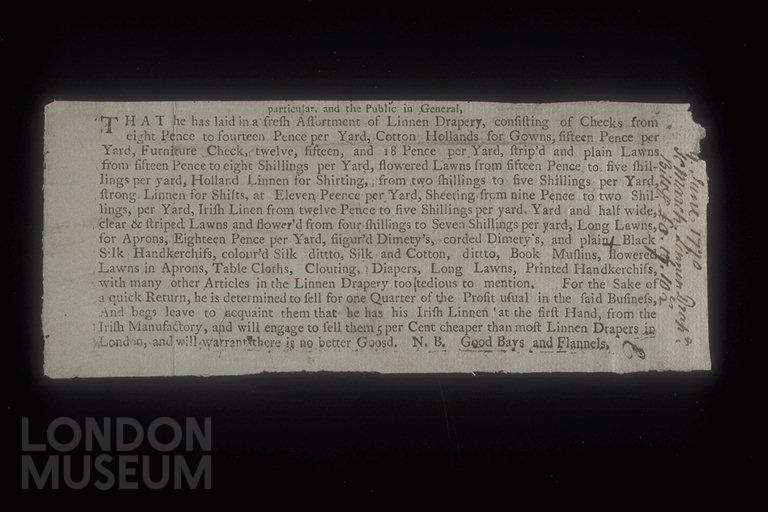 particular, and the Public in General,
THAT he has laid in a fresh Assortment of Linnen Drapery, consisting of Checks from
eight Pence to fourteen Pence per Yard, Cotton Hollands for Gowns, fifteen Pence per
Yard, Furniture Check, twelve, fifteen, and 18 Pence per Yard, strip'd and plain Lawns
from fifteen Pence to eight Shillings per Yard, flowered Lawns from fifteen Pence to five shil-
lings per yard, Holland Linnen for Shirting, from two shillings to five Shillings per Yard,
strong Linnen for Shifts, at Eleven Peence per Yard, Sheeting from nine Pence to two Shil-
lings, per Yard, Irish Linen from twelve Pence to five Shillings per yard. Yard and half wide,
clear & striped Lawns and flower'd from four shillings to Seven Shillings per yard, Long Lawns,
for Aprons, Eighteen Pence per Yard, figur'd Dimety's, corded Dimety's, and plain Black
Silk Handkerchifs, colour'd Silk dittto, Silk and Cotton, dittto, Book Muslins, flowered
Lawns in Aprons, Table Cloths, Clouting, Diapers, Long Lawns, Printed Handkerchifs,
with many other Articles in the Linnen Drapery too tedious to mention. For the Sake of
a quick Return, he is determined to sell for one Quarter of the Profit usual in the said Business,
And begs leave to acquaint them that he has his Irish Linnen at the first Hand, from the
Irish Manufactory, and will engage to sell them 5 per Cent cheaper than most Linnen Drapers in
London, and will warrant there is no better Goosd. N. B. Good Bays and Flannels.
June 1770
LONDON
MUSEUM